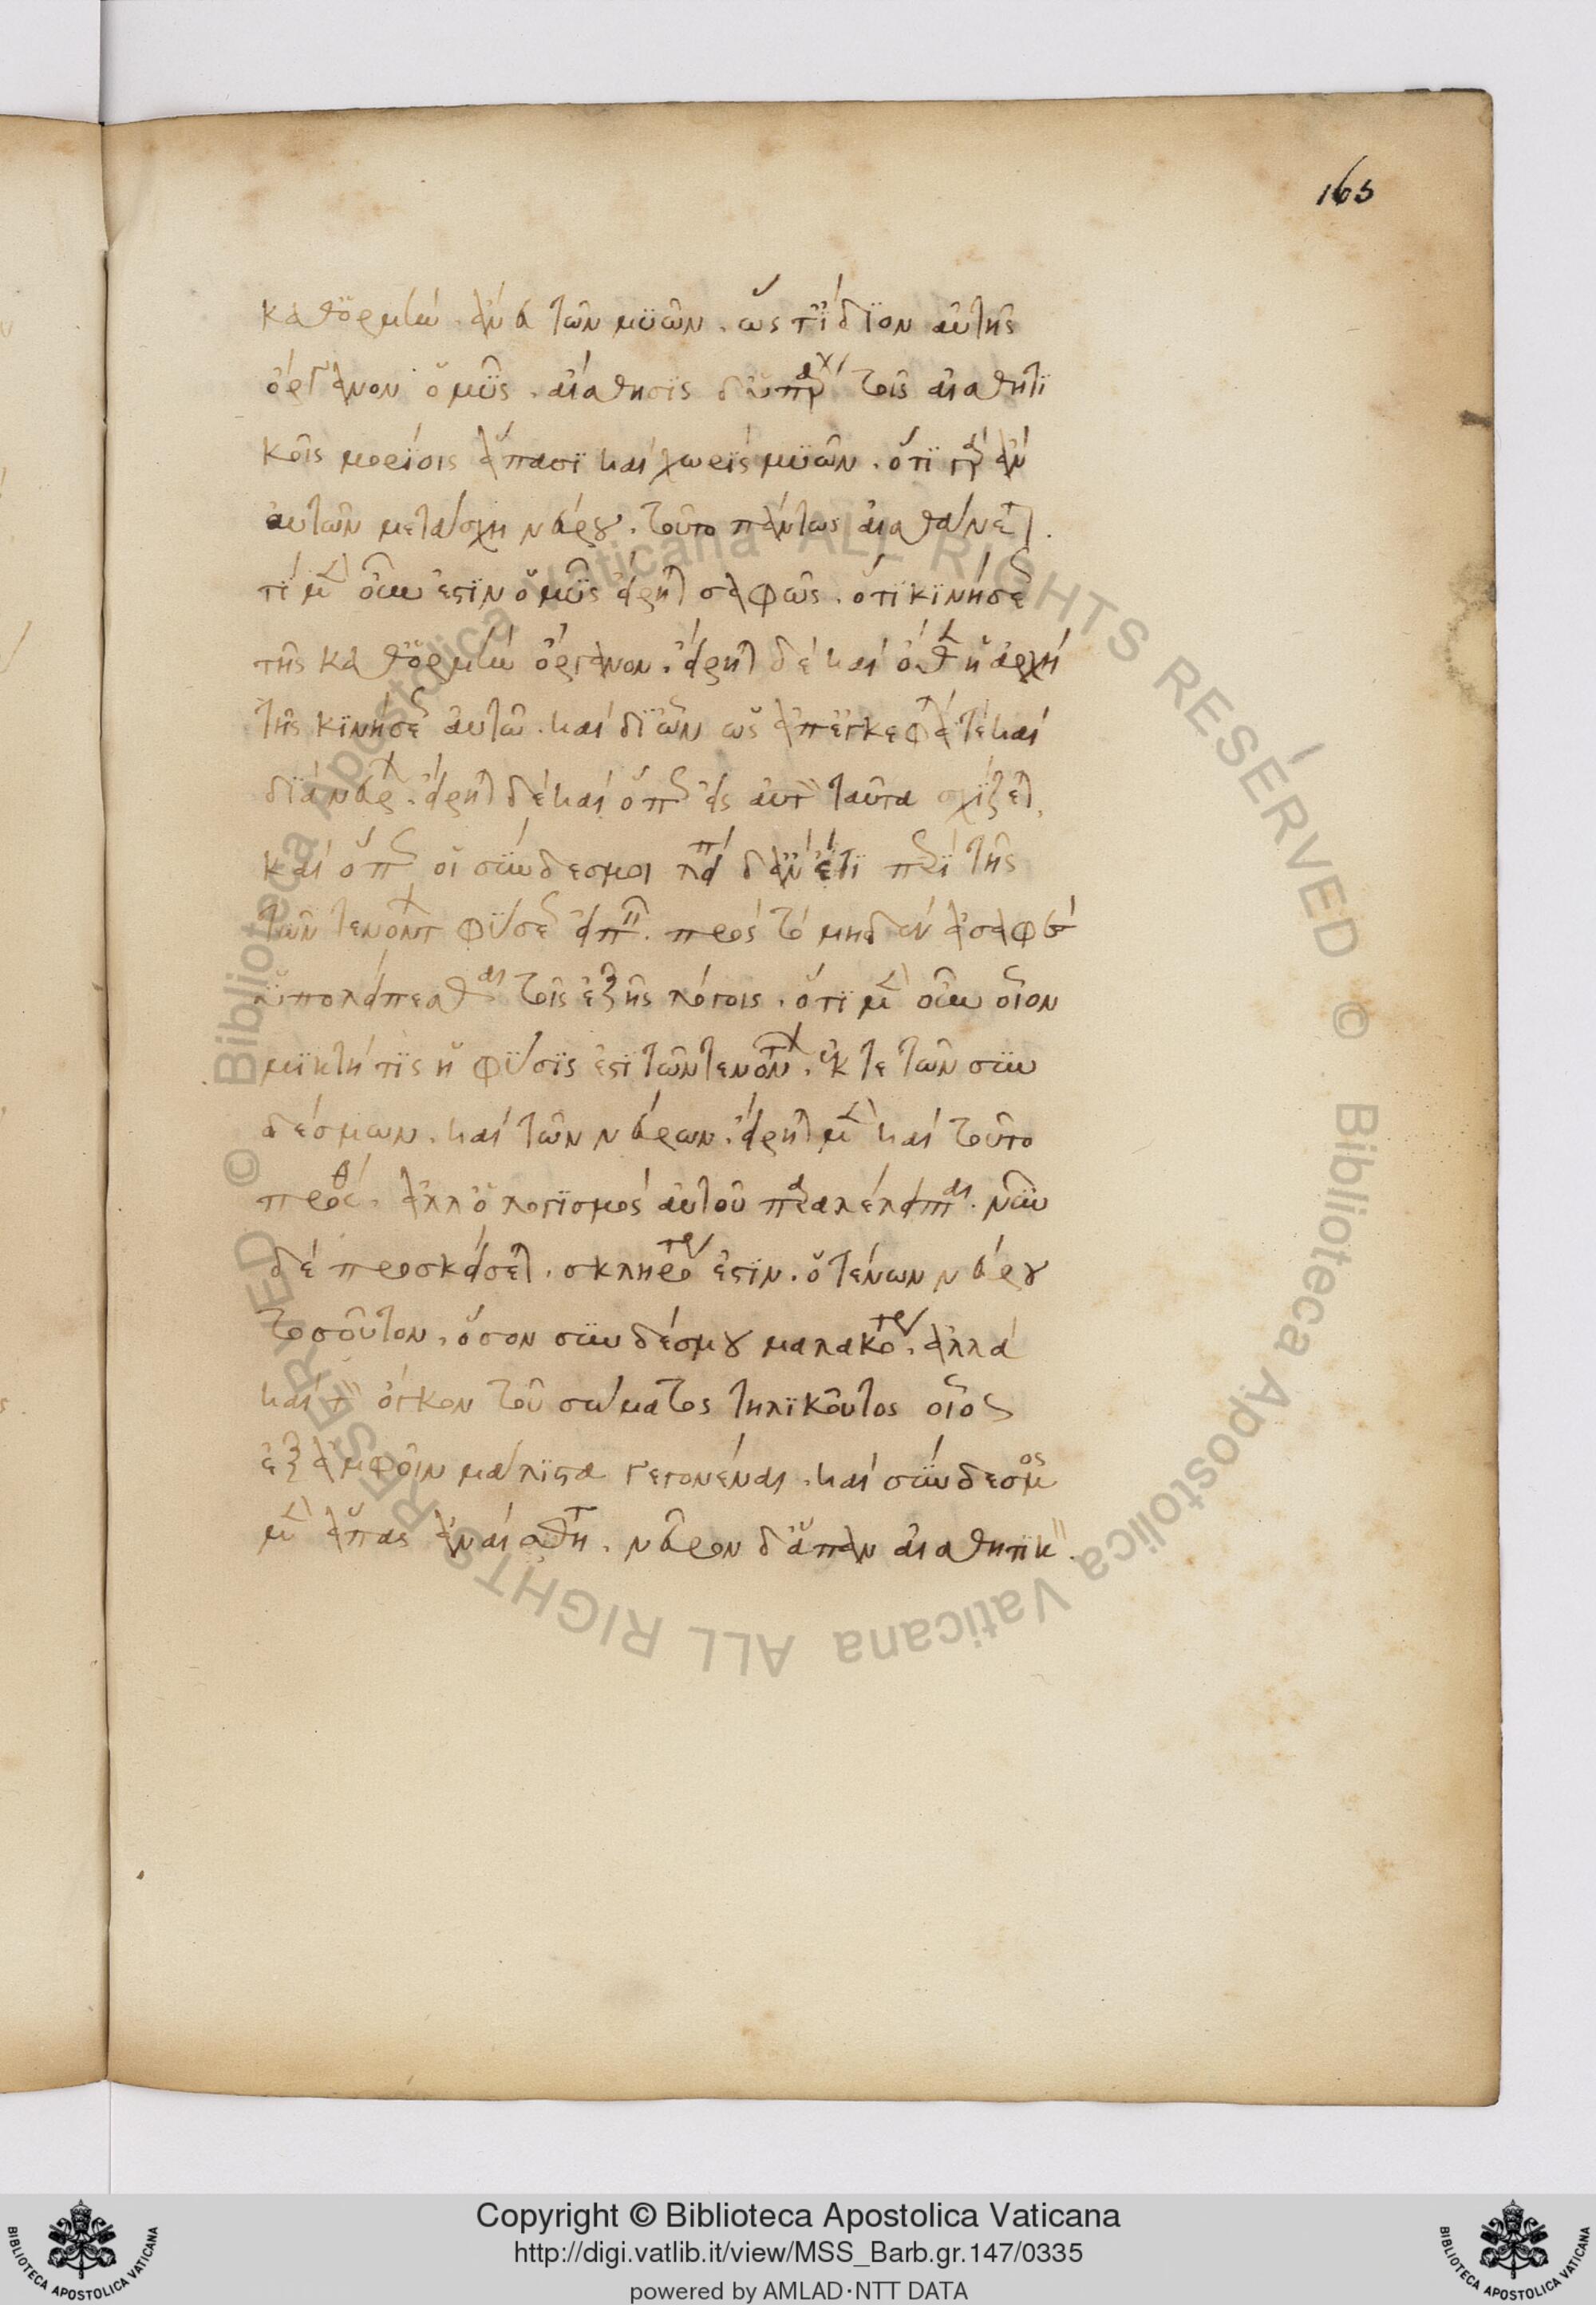 165
καθ' ὁρμὴν ἄνευ τῶν μυῶν. ὥς τ' ἴδιον αὐτῆς
ὄργανον ὁ μῦς. αἴσθησις δ' ὑπάρχει τοῖς αἰσθητι
κοῖς μορίοις ἅπασι καὶ χωρὶς μυῶν. ὅτι γὰρ ἂν
αὐτῶν μετάσχῃ νεύρου. τοῦτο πάντως αἰσθάνεται.
τί μὲν οὖν ἐστιν ὁ μῦς εἴρηται σαφῶς. ὅτι κινήσεως
τῆς καθ' ὁρμὴν ὄργανον. εἴρηται δὲ καὶ ὅθεν ἡ ἀρχὴ
τῆς κινήσεως αὐτῷ. καὶ δι' ὧν ὡς ἀπ' ἐγκεφάλου τε καὶ
διὰ νεύρων. εἴρηται δὲ καὶ ὅπως εἰς αὐτὸν ταῦτα σχίζεται,
καὶ ὅπως οἱ σύνδεσμοι δ' ἂν ἔτι περὶ τῆς
τῶν τενόντων φύσεως εἰπεῖν. πρὸς τὸ μηδὲν ἀσαφὲς
ὑπολείπεσθαι τοῖς ἑξῆς λόγοις. ὅτι μὲν οὖν οἷον
μικτή τις ἡ φύσις ἐστὶ τῶν τενόντων. ἔκ τε τῶν συν
δέσμων. καὶ τῶν νεύρων. εἴρηται μὲν καὶ τοῦτο
πρόσθεν. ἀλλ' ὁ λογισμὸς αὐτοῦ παραλέλειπται. νῦν
δὲ προσκείσεται. σκληρότερός ἐστιν. ὁ τένων νεύρου
τοσοῦτον. ὅσον συνδέσμου μαλακώτερος. ἀλλὰ
καὶ τὸν ὄγκον τοῦ σώματος τηλικοῦτος οἷος
ἐξ ἀμφοῖν μάλιστα γεγονέναι. καὶ σύνδεσμος
μὲν ἅπας ἀναίσθητος. νεῦρον δ' ἅπαν αἰσθητικόν.
Copyright © Biblioteca Apostolica Vaticana
http://digi.vatlib.it/view/MSS_Barb.gr.147/0335
powered by AMLAD·NTT DATA